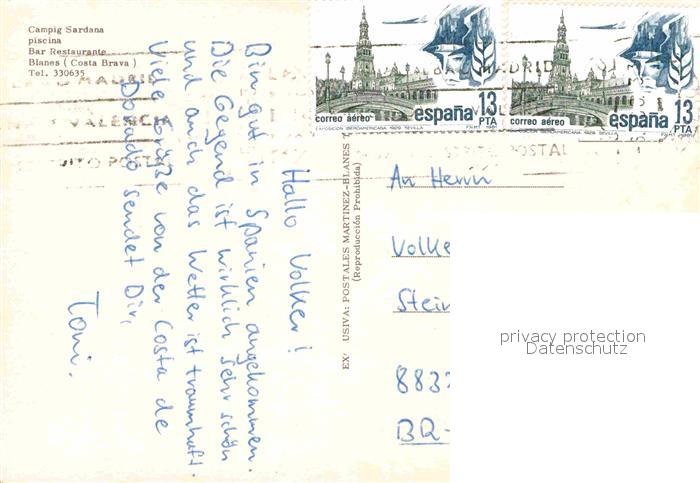 Campig Sardana
piscina
Bar Restaurante
Blanes ( Costa Brava )
Tel. 330635
Hallo Volker!
Bin gut in Spanien angekommen.
Die Gegend ist wirklich sehr schön
und auch das Wetter ist traumhaft.
Viele Grüße von der Costa de
Dorado sendet Dir,
Toni.
USIVA: POSTALES MARTINEZ-BLANES
(Reproducción Prohibida)
correo aéreo
españa
13
PTA
EXPOSICION IBEROAMERICANA 1929 SEVILLA
F.N.M.T. 1981
correo aéreo
españa
13
PTA
IBEROAMERICANA 1929 SEVILLA
F.N.M.T. 1981
MADRID
VALENCIA
POSTAL
MADRID
POSTAL
An Herrn
Volke
Stein
883
BR-
privacy protection
Datenschutz